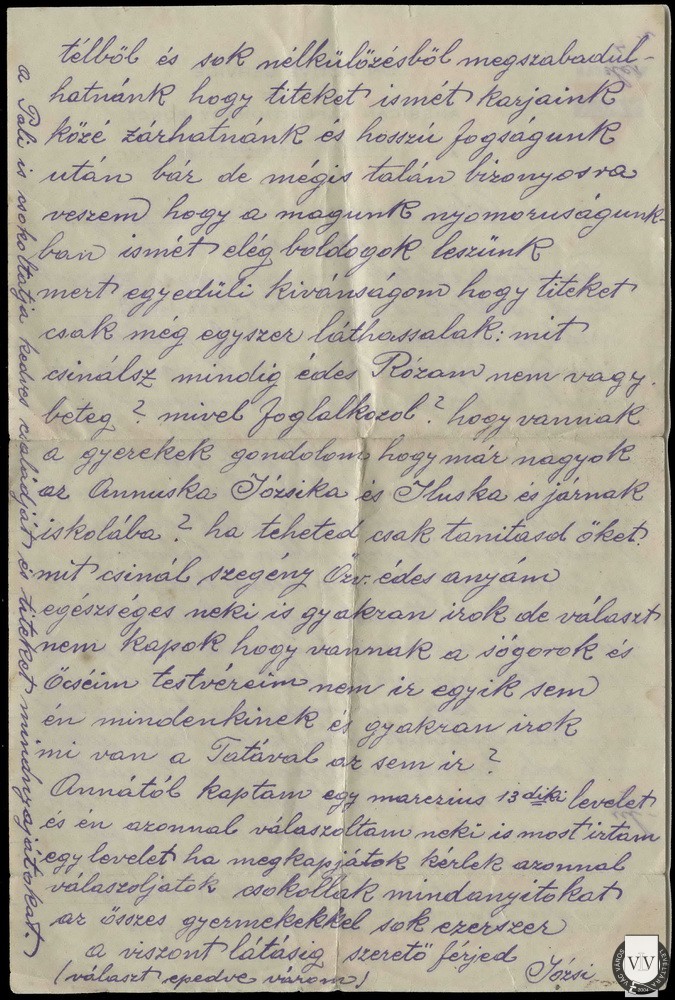 télből és sok nélkülözésből megszabadúl-
hatnánk hogy titeket ismét karjaink
közé zárhatnánk és hosszú fogságunk
után bár de mégis talán bizonyosra
veszem hogy a magunk nyomoruságunk-
ban ismét elég boldogok leszünk
mert egyedüli kivánságom hogy titeket
csak még egyszer láthassalak: mit
csinálsz mindig édes Rózam nem vagy
beteg? mivel foglalkozol? hogy vannak
a gyerekek gondolom hogy már nagyok
az Annuska Józsika és Iluska és járnak
iskolába? ha teheted csak tanitasd őket
mit csinál szegény Özv. édes anyám
egészséges neki is gyakran irok de választ
nem kapok hogy vannak a sógorok és
Öcséim testvéreim nem ir egyik sem
én mindenkinek és gyakran irok
mi van a Tatával az sem ir?
Annától kaptam egy marczius 13 diki levelet
és én azonnal válaszoltam neki is most irtam
egy levelet ha megkapjátok kérlek azonnal
válaszoljatok csokollak mindanyitokat
az összes gyermekekkel sok ezerszer
a viszont látásig szerető férjed
(választ epedve várom) Józsi
a Pali is csokoltatja kedves családját és titeket mindnyájatokat.
VÁC VÁROS LEVÉLTÁRA
VVL